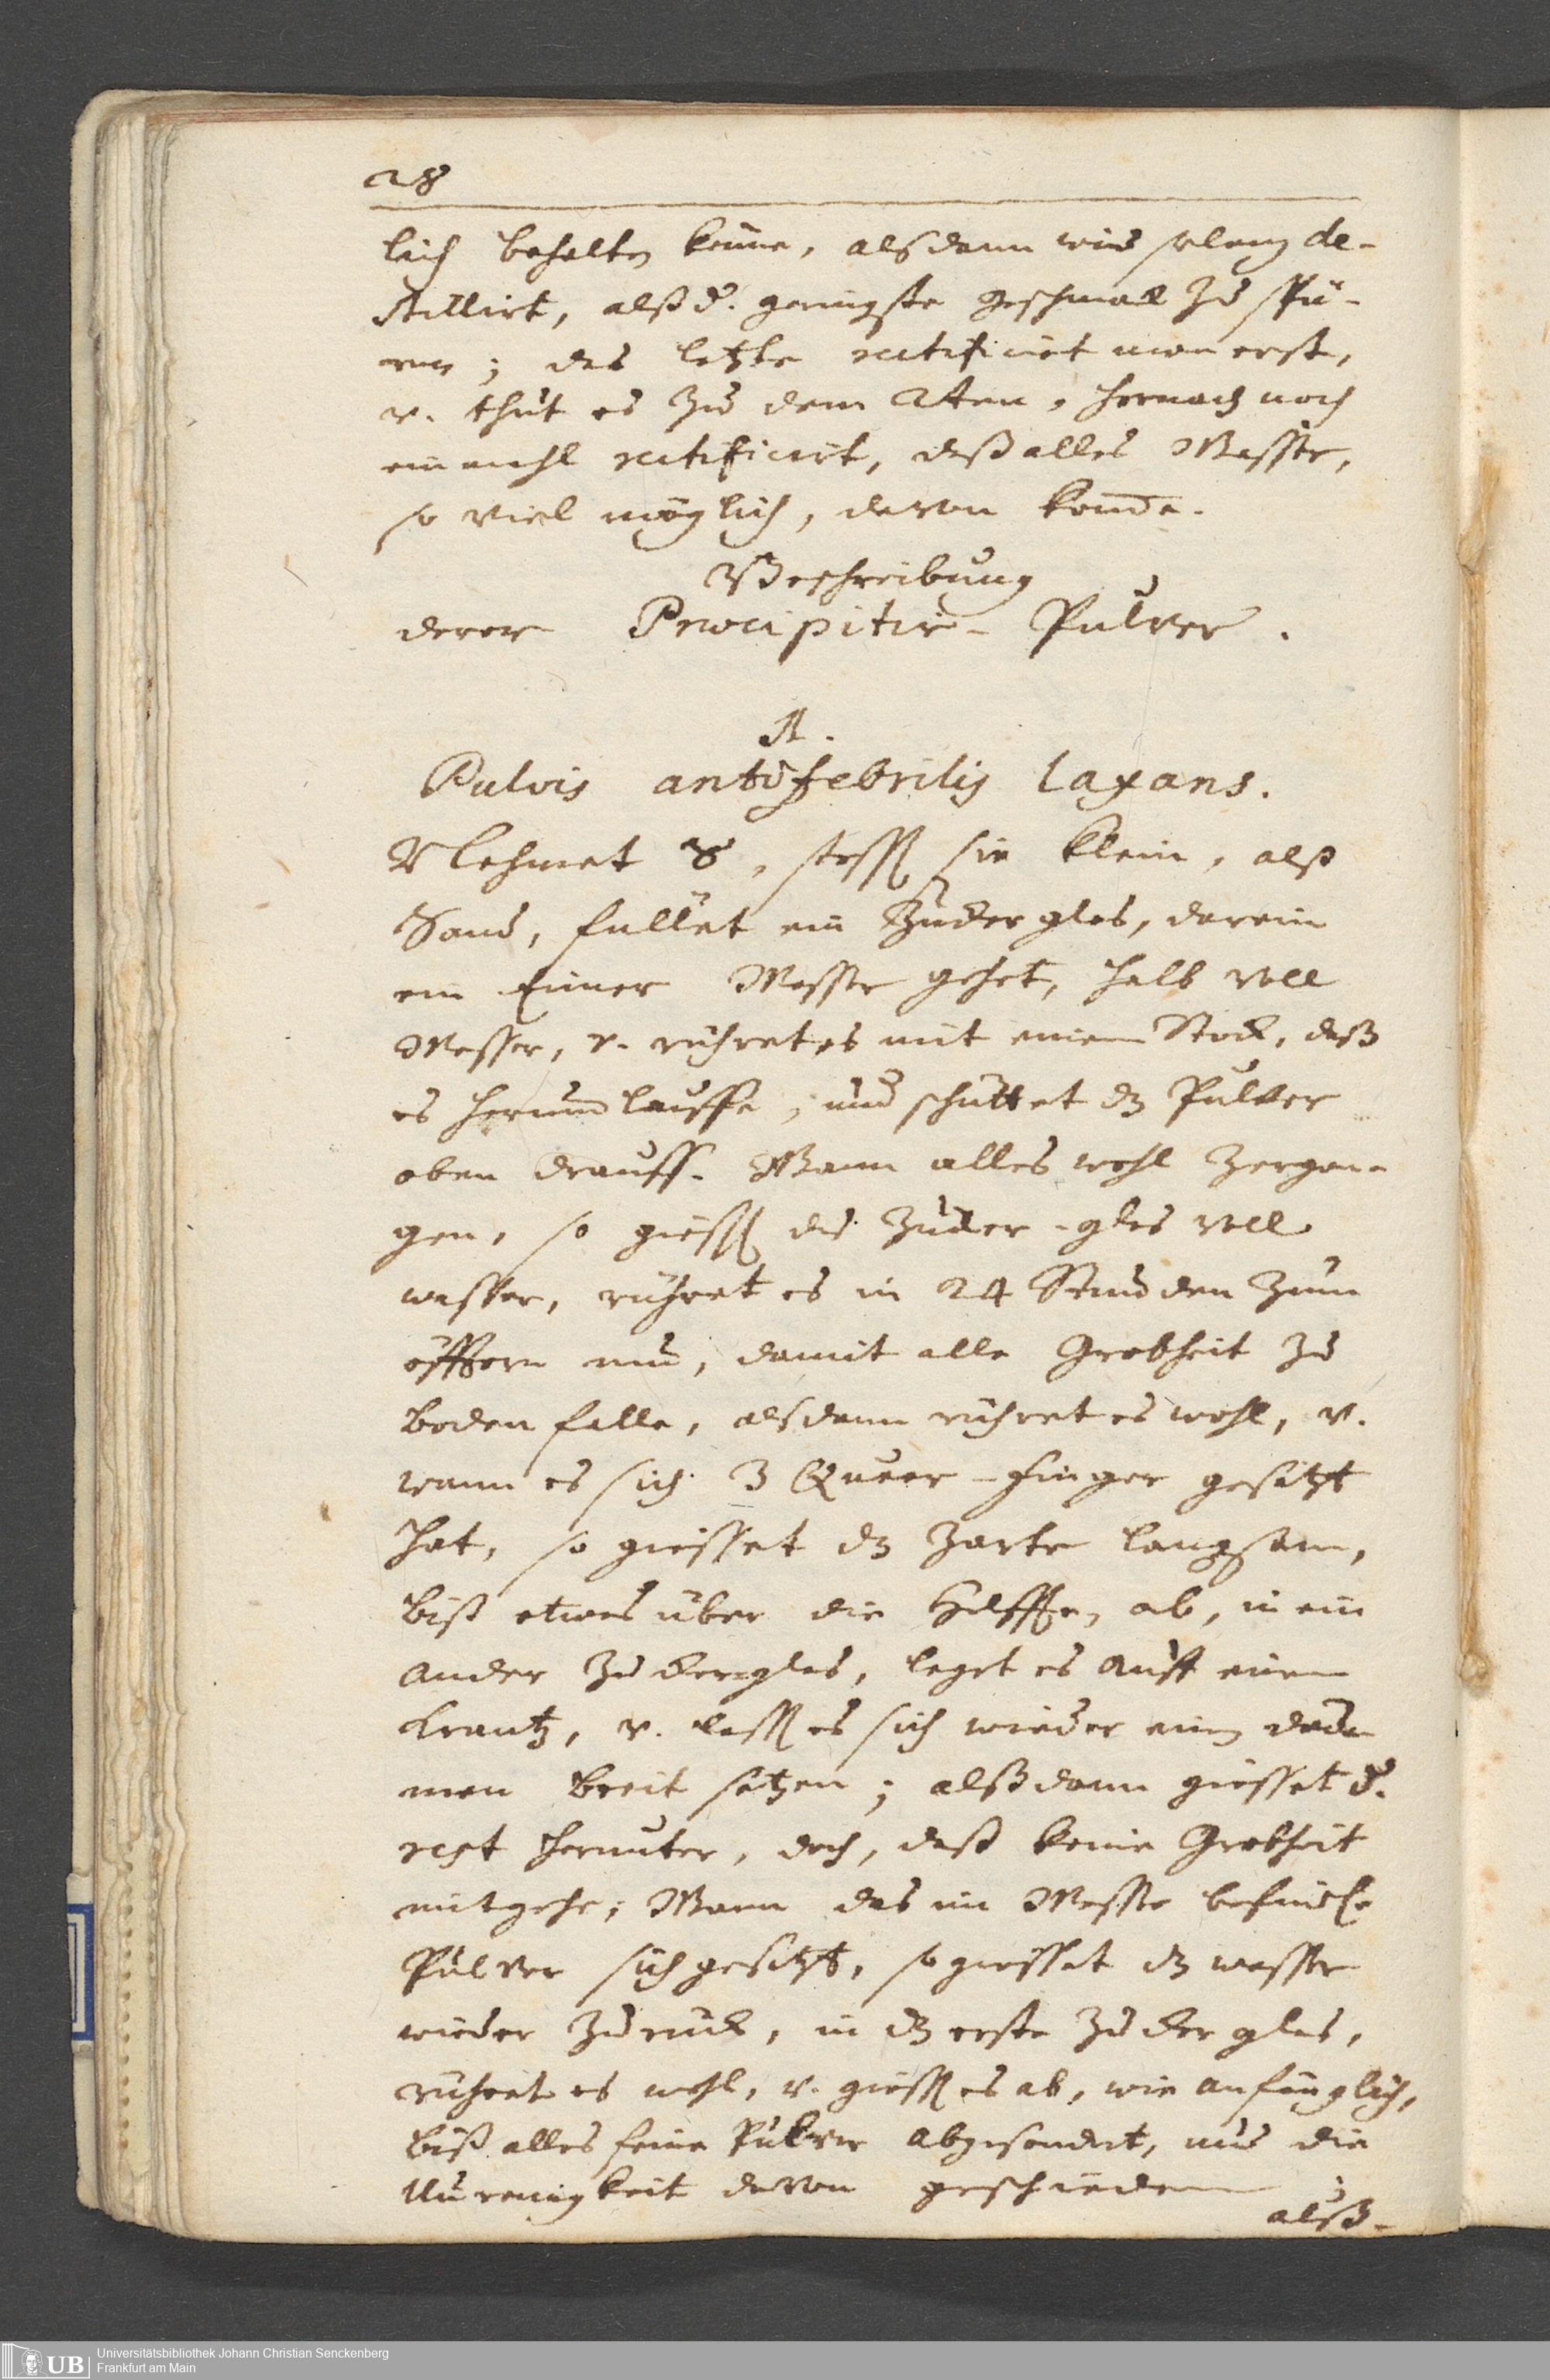 28
lich behalten könne, alsdann wird solang de-
stillirt, alß d. geringste Geschmack zu spü-
ren; das letzte rectificirt man erst,
v. thut es zu dem 2ten, hernach noch
einmahl rectificirt, daß alles Wasser,
so viel möglich, davon komme.
Beschreibung
derer Præcipitir- Pulver.
A.
Pulvis antifebrilis laxans.
Nehmet ♉, stoßt sie klein, alß
Sand, füllet ein Zuckerglas, darein
ein Eimer Wasser gehet, halb voll
Wasser, v. rühret es mit einem Stock, daß
es herumlauffe, und schüttet dz Pulver
oben drauff. Wann alles wohl zergan-
gen, so gießt das Zucker-glas voll
wasser, rühret es in 24 Stunden zum
öfftern um, damit alle Grobheit zu
boden falle, alsdann rühret es wohl, v.
wann es sich 3 Queer-Finger gesetzt
hat, so giesset dz zarte langsam,
biß etwas über die Helffte, ab, in ein
ander Zuckerglas, leget es auff einen
Krantz, v. laßt es sich wieder ein dau-
men breit setzen; alßdann giesset d.
rest herunter, doch, daß keine Grobheit
mitgehe; Wann das im Wasser befindl.
Pulver sich gesetzt, so giesset dz wasser
wieder zuruck, in dz erste Zuckerglas,
rühret es wohl, v. gießt es ab, wie anfänglich,
biß alles feine Pulver abgesondert, und die
Unreinigkeit davon geschieden;
alß-
UB Universitätsbibliothek Johann Christian Senckenberg
Frankfurt am Main